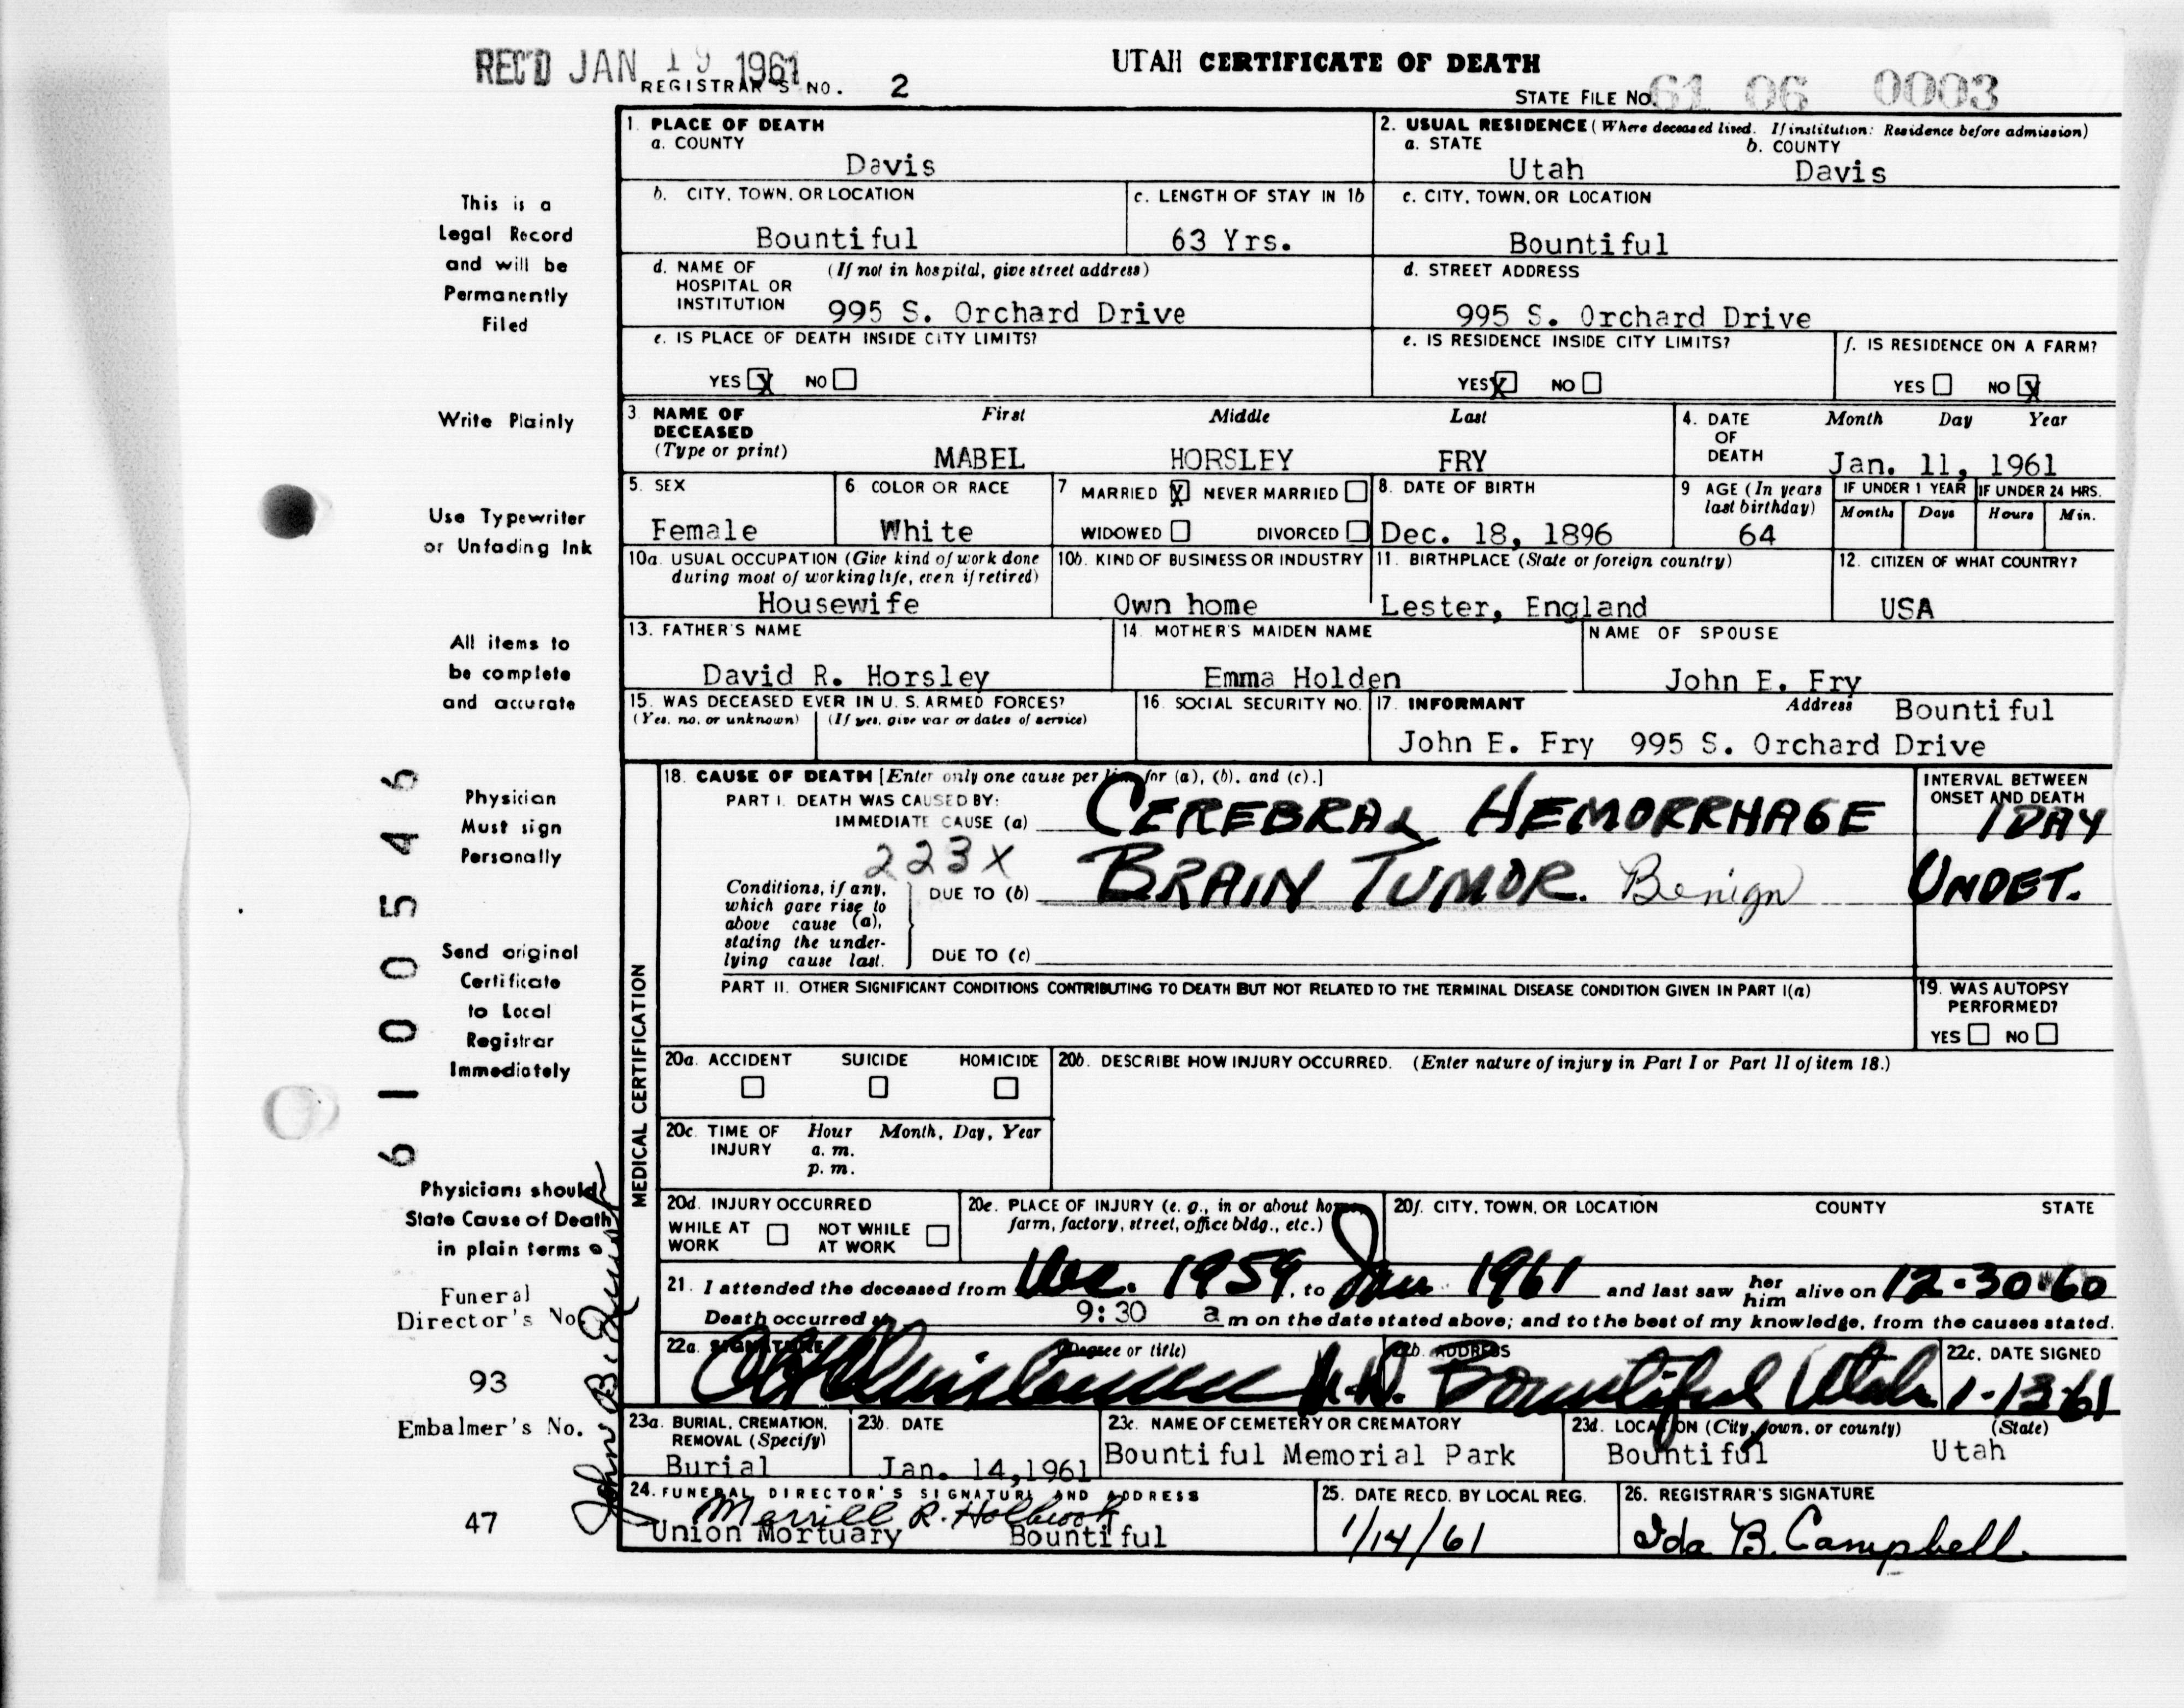 REC'D JAN 19 1961
UTAH CERTIFICATE OF DEATH
REGISTRAR'S NO. 2
STATE FILE NO. 61 06 0003
1. PLACE OF DEATH
a. COUNTY
Davis
2. USUAL RESIDENCE (Where deceased lived. If institution: Residence before admission)
a. STATE b. COUNTY
Utah Davis
b. CITY, TOWN, OR LOCATION
Bountiful
c. LENGTH OF STAY IN 1b
63 Yrs.
c. CITY, TOWN, OR LOCATION
Bountiful
d. NAME OF (If not in hospital, give street address)
HOSPITAL OR
INSTITUTION 995 S. Orchard Drive
d. STREET ADDRESS
995 S. Orchard Drive
e. IS PLACE OF DEATH INSIDE CITY LIMITS?
YES X NO
e. IS RESIDENCE INSIDE CITY LIMITS?
YES X NO
f. IS RESIDENCE ON A FARM?
YES NO X
3. NAME OF DECEASED (Type or print)
First Middle Last
MABEL HORSLEY FRY
4. DATE OF DEATH
Month Day Year
Jan. 11, 1961
5. SEX
Female
6. COLOR OR RACE
White
7. MARRIED X NEVER MARRIED
WIDOWED DIVORCED
8. DATE OF BIRTH
Dec. 18, 1896
9. AGE (In years last birthday)
64
IF UNDER 1 YEAR IF UNDER 24 HRS.
Months Days Hours Min.
10a. USUAL OCCUPATION (Give kind of work done
during most of working life, even if retired)
Housewife
10b. KIND OF BUSINESS OR INDUSTRY
Own home
11. BIRTHPLACE (State or foreign country)
Lester, England
12. CITIZEN OF WHAT COUNTRY?
USA
13. FATHER'S NAME
David R. Horsley
14. MOTHER'S MAIDEN NAME
Emma Holden
NAME OF SPOUSE
John E. Fry
15. WAS DECEASED EVER IN U. S. ARMED FORCES?
(Yes, no, or unknown) (If yes, give war or dates of service)
16. SOCIAL SECURITY NO.
17. INFORMANT Address Bountiful
John E. Fry 995 S. Orchard Drive
MEDICAL CERTIFICATION
18. CAUSE OF DEATH [Enter only one cause per line for (a), (b), and (c).]
PART I. DEATH WAS CAUSED BY:
IMMEDIATE CAUSE (a) CEREBRAL HEMORRHAGE
INTERVAL BETWEEN
ONSET AND DEATH
1 DAY
223X
Conditions, if any,
which gave rise to
above cause (a),
stating the under-
lying cause last.
DUE TO (b) BRAIN TUMOR. Benign UNDET.
DUE TO (c)
PART II. OTHER SIGNIFICANT CONDITIONS CONTRIBUTING TO DEATH BUT NOT RELATED TO THE TERMINAL DISEASE CONDITION GIVEN IN PART I(a)
19. WAS AUTOPSY
PERFORMED?
YES NO
20a. ACCIDENT SUICIDE HOMICIDE
20b. DESCRIBE HOW INJURY OCCURRED. (Enter nature of injury in Part I or Part II of item 18.)
20c. TIME OF INJURY Hour Month, Day, Year
a. m.
p. m.
20d. INJURY OCCURRED
WHILE AT WORK NOT WHILE AT WORK
20e. PLACE OF INJURY (e. g., in or about home,
farm, factory, street, office bldg., etc.)
20f. CITY, TOWN, OR LOCATION COUNTY STATE
21. I attended the deceased from Dec. 1959, to Jan 1961 and last saw her him alive on 12-30-60
Death occurred at 9:30 a m on the date stated above; and to the best of my knowledge, from the causes stated.
22a. SIGNATURE (Degree or title)
M.D.
22b. ADDRESS
Bountiful Utah
22c. DATE SIGNED
1-13-61
23a. BURIAL, CREMATION,
REMOVAL (Specify)
Burial
23b. DATE
Jan. 14,1961
23c. NAME OF CEMETERY OR CREMATORY
Bountiful Memorial Park
23d. LOCATION (City, town, or county) (State)
Bountiful Utah
24. FUNERAL DIRECTOR'S SIGNATURE AND ADDRESS
Merrill R. Holbrook
Union Mortuary Bountiful
25. DATE RECD. BY LOCAL REG.
1/14/61
26. REGISTRAR'S SIGNATURE
Ida B. Campbell
This is a
Legal Record
and will be
Permanently
Filed
Write Plainly
Use Typewriter
or Unfading Ink
All items to
be complete
and accurate
Physician
Must sign
Personally
Send original
Certificate
to Local
Registrar
Immediately
Physicians should
State Cause of Death
in plain terms
Funeral
Director's No.
93
Embalmer's No.
47
6100546
John B.